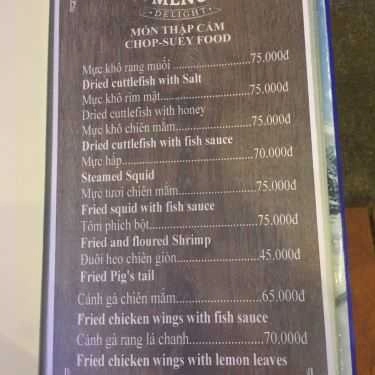 MENU
DELIGHT
MÓN THẬP CẨM
CHOP-SUEY FOOD
Mực khô rang muối ........................75.000đ
Dried cuttlefish with Salt
Mực khô rim mật..........................75.000đ
Dried cuttlefish with honey
Mực khô chiên mắm........................75.000đ
Dried cuttlefish with fish sauce
Mực hấp..........................................70.000đ
Steamed Squid
Mực tươi chiên mắm........................75.000đ
Fried squid with fish sauce
Tôm phích bột..................................75.000đ
Fried and floured Shrimp
Đuôi heo chiên giòn........................45.000đ
Fried Pig's tail
Cánh gà chiên mắm........................65.000đ
Fried chicken wings with fish sauce
Cánh gà rang lá chanh......................70.000đ
Fried chicken wings with lemon leaves